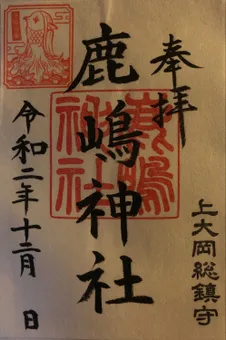 奉拝
上大岡総鎮守
鹿嶋神社
鹿嶋神社
令和二年十二月 日